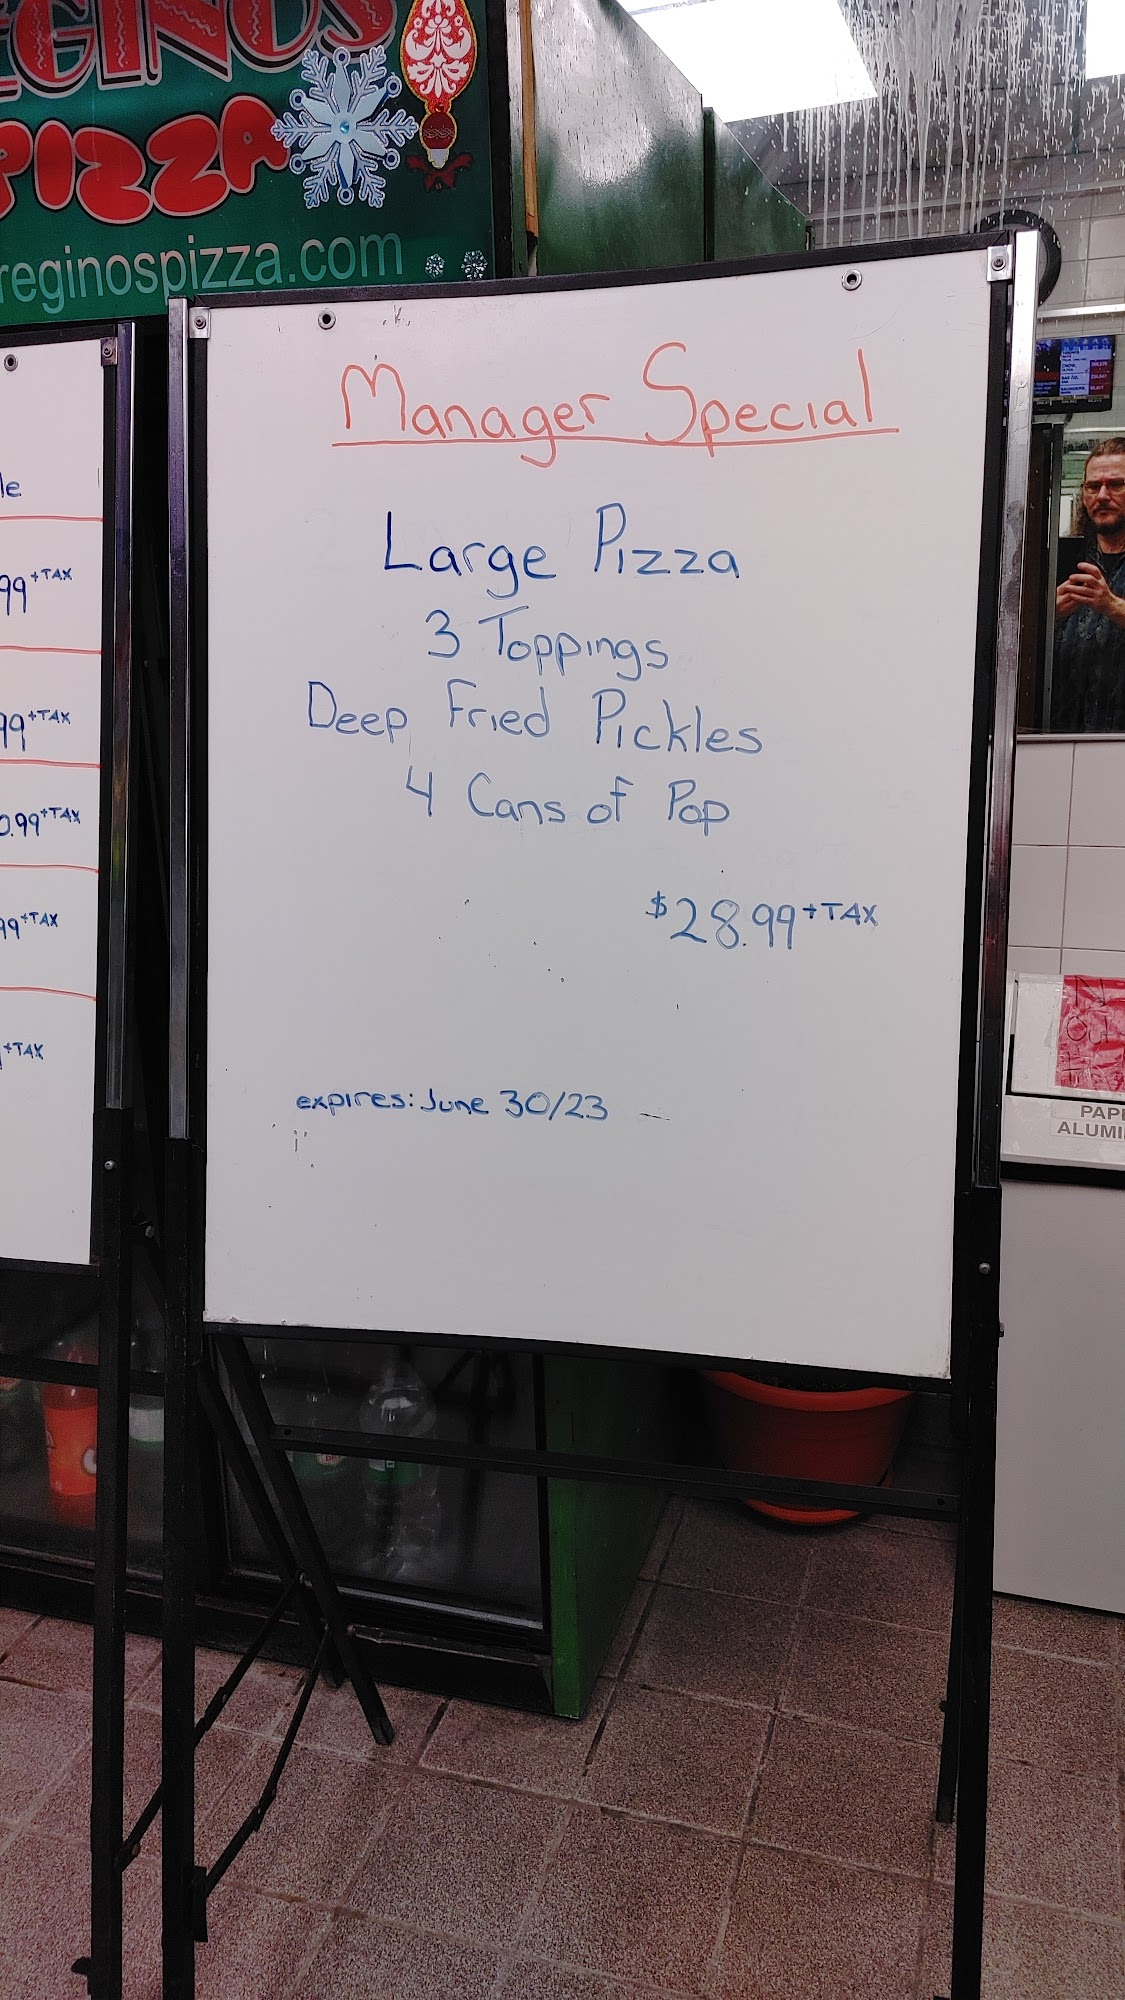 REGINOS
PIZZA
reginospizza.com
le
99 +TAX
99 +TAX
0.99 +TAX
99 +TAX
+TAX
Manager Special
Large Pizza
3 Toppings
Deep Fried Pickles
4 Cans of Pop
$28.99 +TAX
expires: June 30/23
PAP
ALUMI